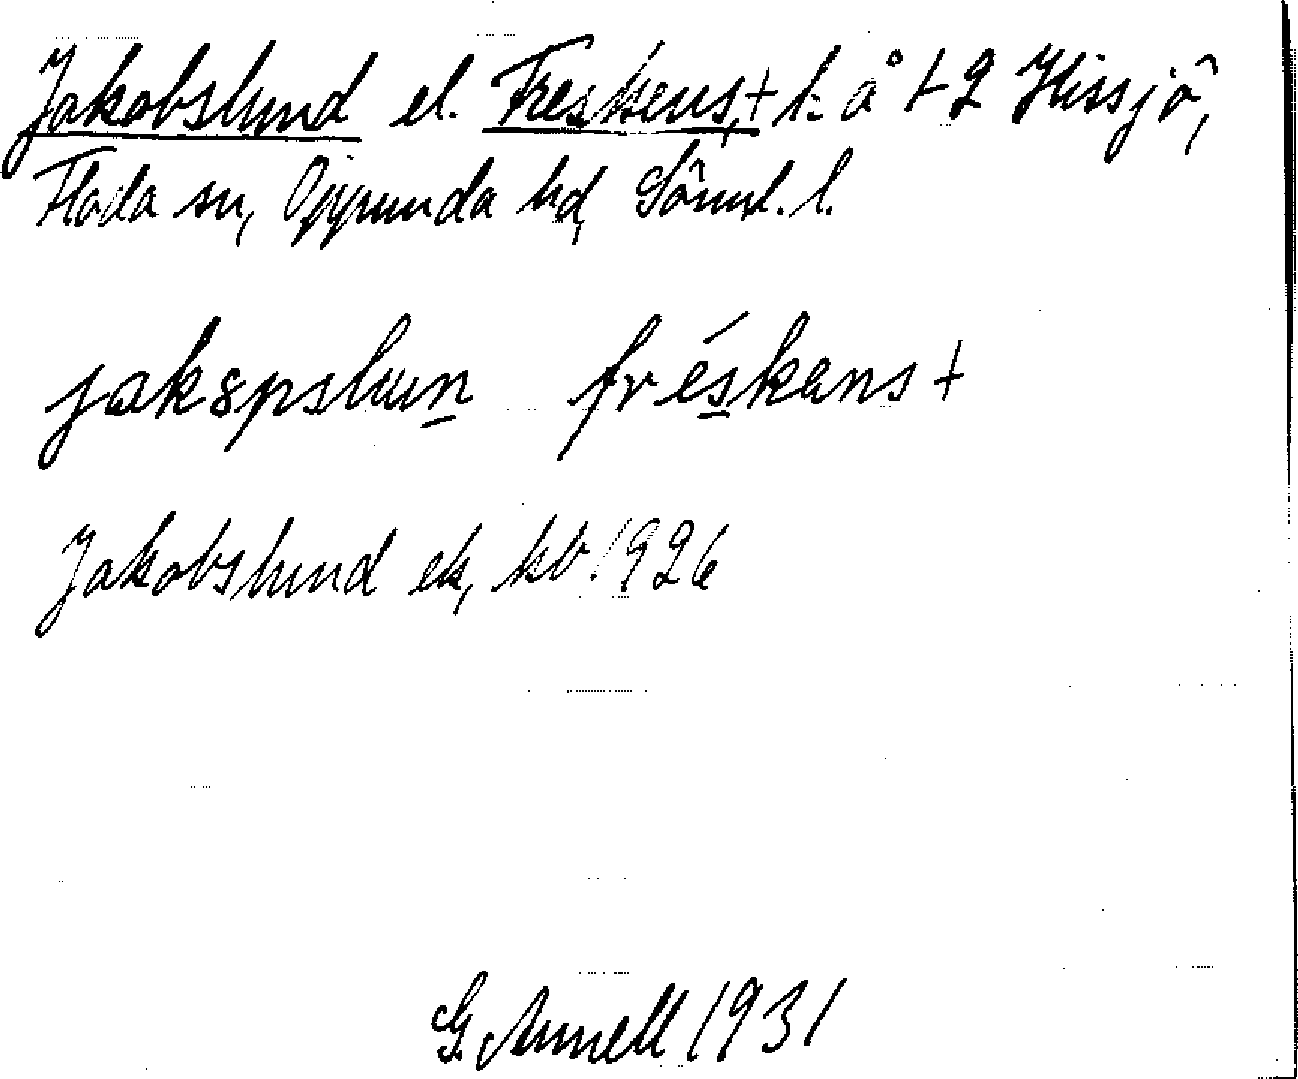 Jakobslund el. Freskens, + l. å 1-2 Hissjö,
Floda sn, Oppunda hd, Sörml. l.
jakɷpslun freskans +
Jakobslund ek, kb. 1926
G. Annell 1931